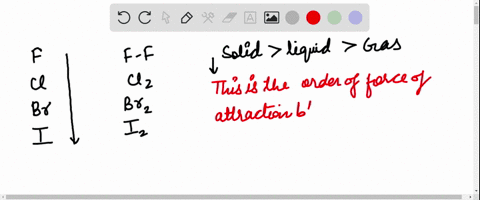 F F-F Solid > liquid > Gas
Cl Cl2 This is the order of force of
Br Br2 attraction b'
I I2